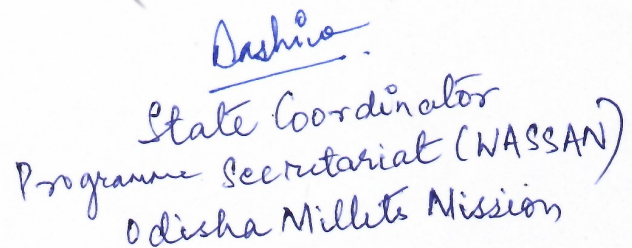 State Coordinator
Programme Secretariat (WASSAN)
Odisha Millets Mission